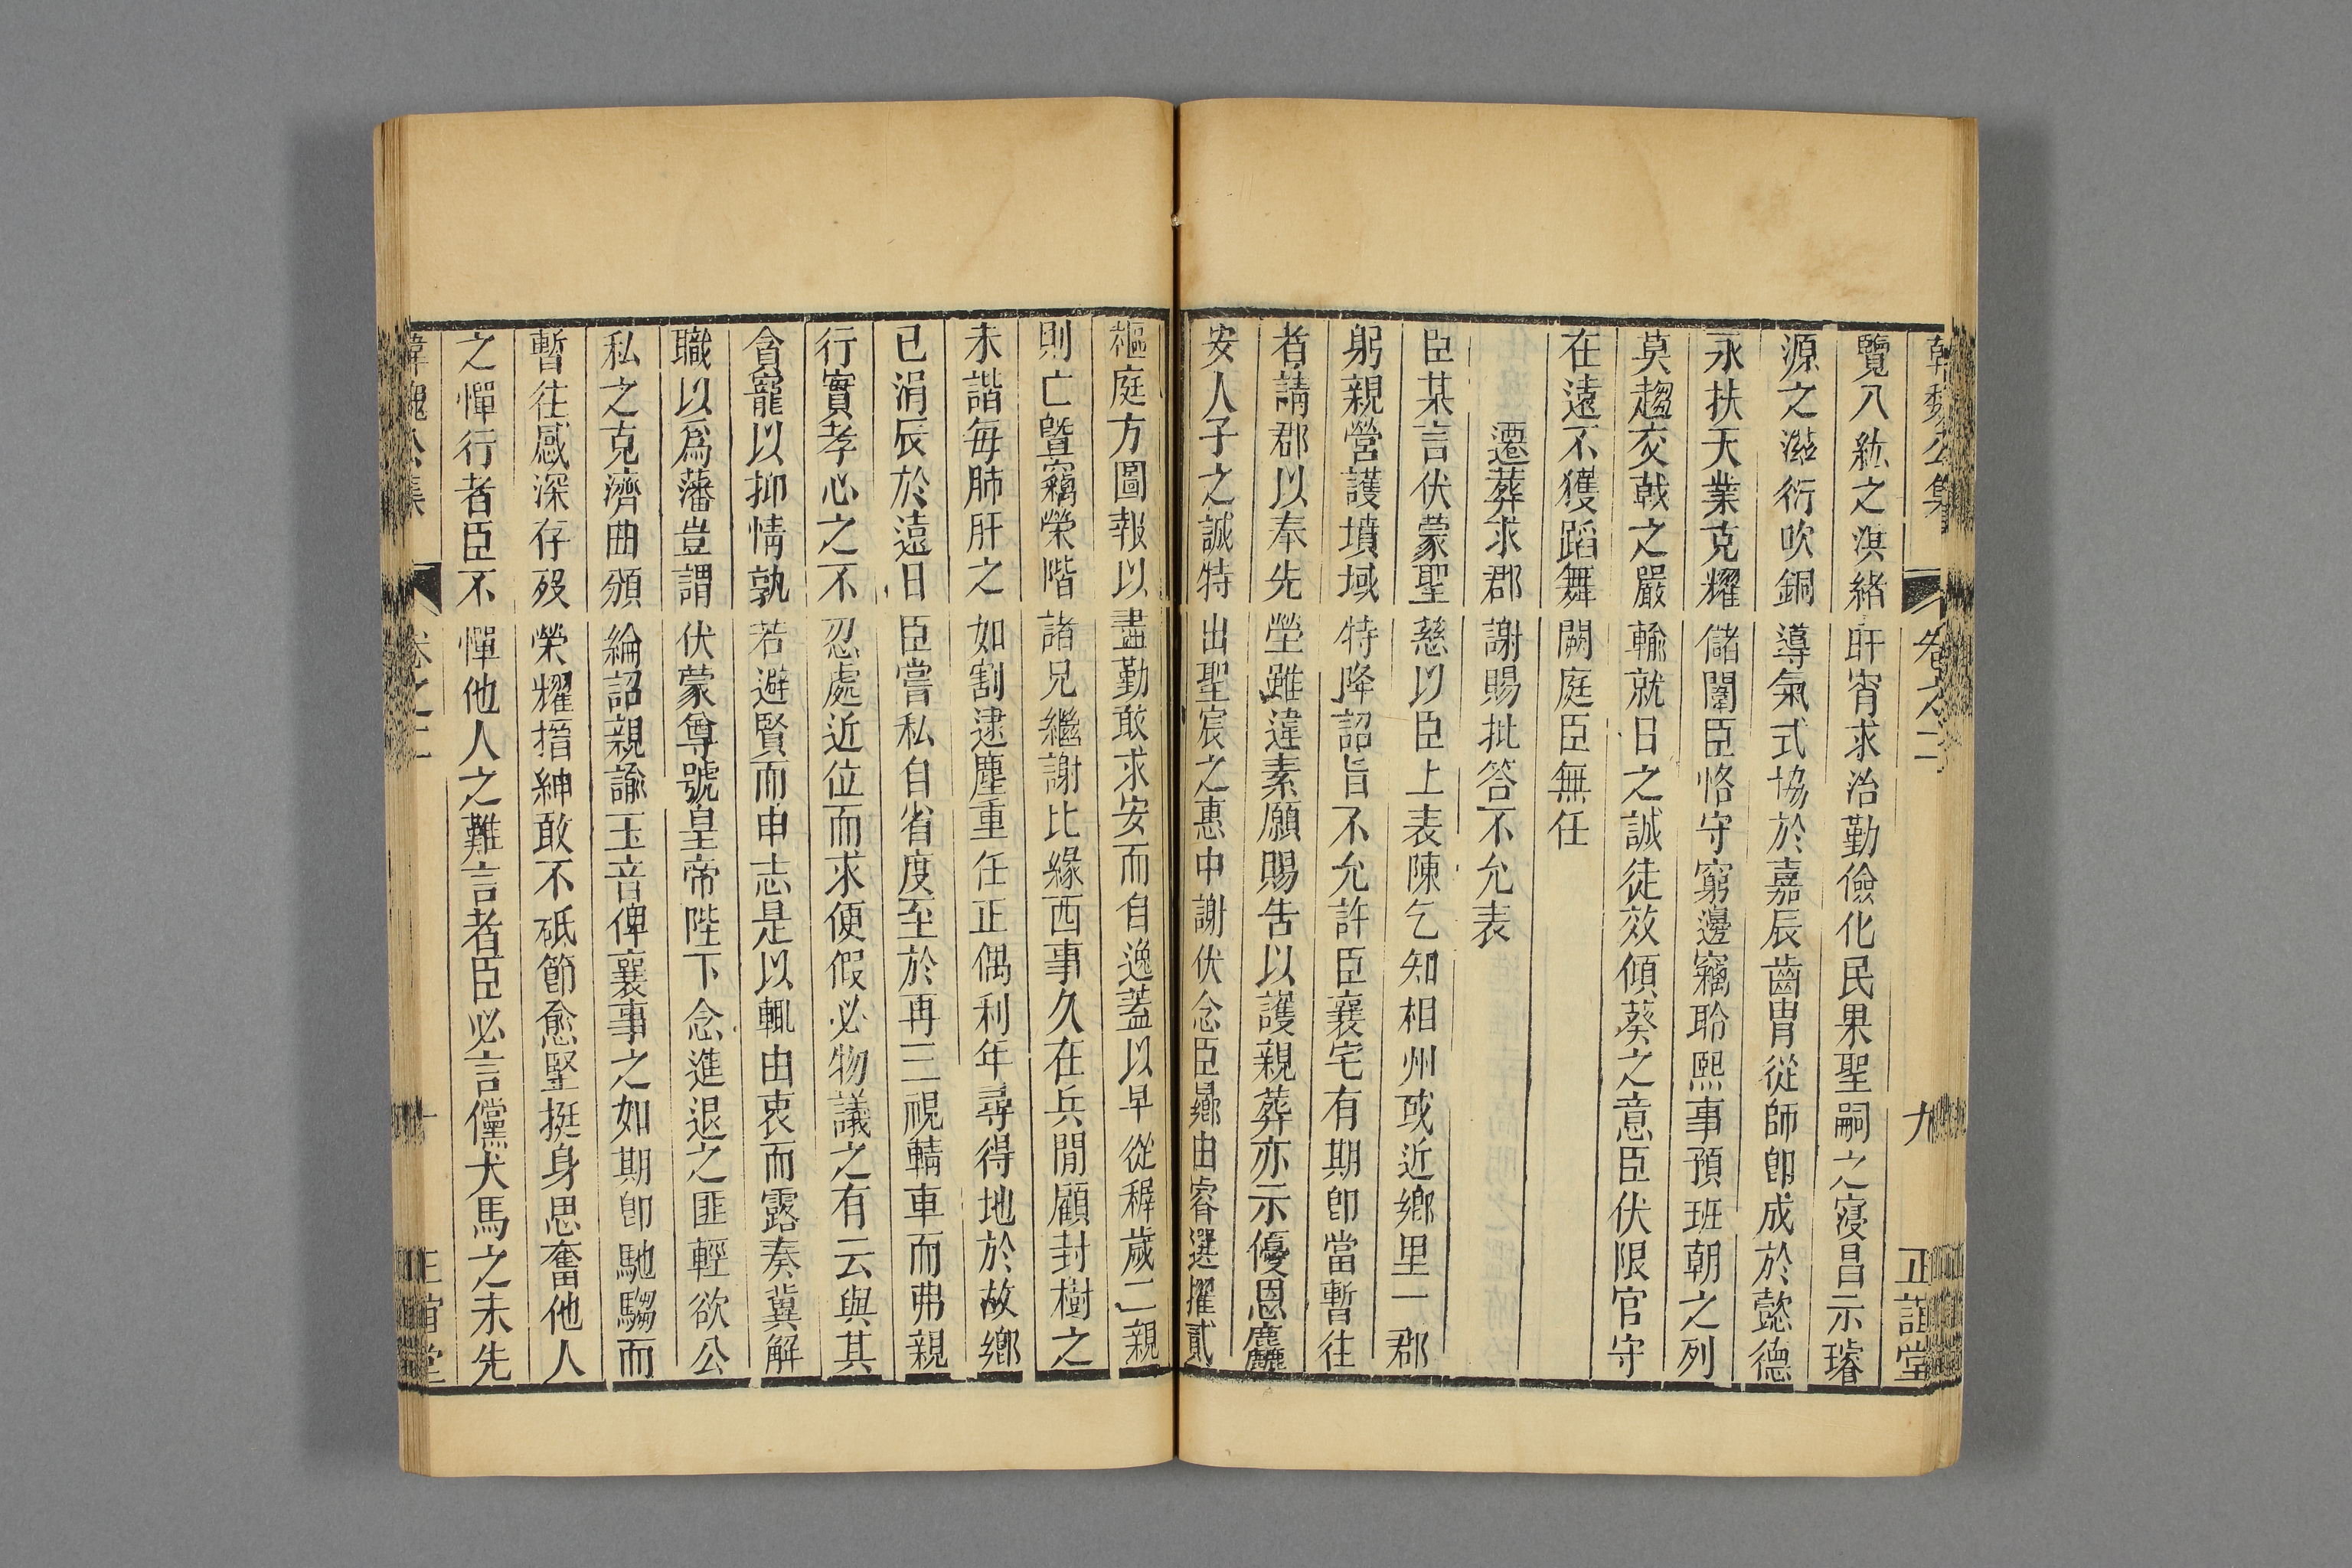 韓魏公集 卷之二 九 正誼堂
覽八紘之淇緒旰宵求治勤儉化民果聖嗣之寖昌示璿
源之滋衍吹銅導氣式協於嘉辰齒胄從師卽成於懿德
永扶天業克耀儲闈臣恪守窮邊竊聆熙事預班朝之列
莫趨交戟之嚴輸就日之誠徒效傾葵之意臣伏限官守
在遠不獲蹈舞闕庭臣無任
遷葬求郡謝賜批答不允表
臣某言伏蒙聖慈以臣上表陳乞知相州或近鄉里一郡
躬親營護墳域特降詔旨不允許臣襄宅有期卽當暫往
者請郡以奉先塋雖違素願賜告以護親葬亦示優恩麤
安人子之誠特出聖宸之惠中謝伏念臣曏由睿選擢貳
樞庭方圖報以盡勤敢求安而自逸蓋以早從稺歲二親
則亡曁竊榮階諸兄繼謝比緣西事久在兵閒顧封樹之
未諧每肺肝之如割逮塵重任正偶利年尋得地於故鄉
已涓辰於遠日臣嘗私自省度至於再三視輤車而弗親
行實孝心之不忍處近位而求便假必物議之有云與其
貪寵以抑情孰若避賢而申志是以輒由衷而露奏冀解
職以爲藩豈謂伏蒙尊號皇帝陛下念進退之匪輕欲公
私之克濟曲頒綸詔親諭玉音俾襄事之如期卽馳騶而
暫往感深存歿榮耀搢紳敢不砥節愈堅挺身思奮他人
之憚行者臣不憚他人之難言者臣必言儻犬馬之未先
韓魏公集 卷之二 十 正誼堂